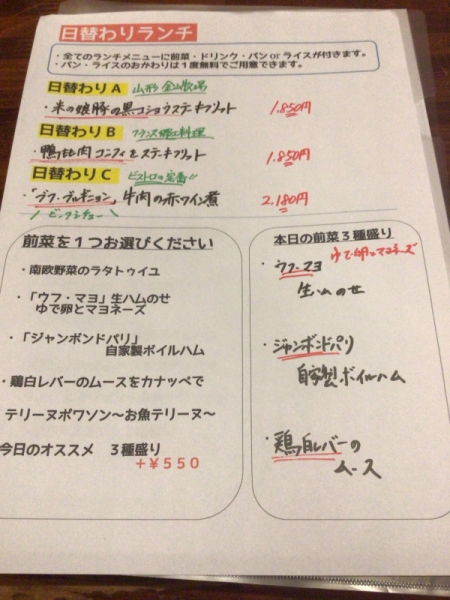 日替わりランチ
・全てのランチメニューに前菜・ドリンク・パン or ライスが付きます。
・パン・ライスのおかわりは1度無料でご用意できます。
日替わりA 山形
・米の娘豚の黒コショウステーキフリット 1.850円
日替わりB フランス郷土料理
・鴨モモ肉コンフィとステーキフリット 1.850円
日替わりC ビストロの定番!!
・「ブフ・ブルギニョン」牛肉の赤ワイン煮 2.180円
ビーフシチュー
前菜を1つお選びください
・南欧野菜のラタトゥイユ
・「ウフ・マヨ」生ハムのせ
ゆで卵とマヨネーズ
・「ジャンボンドパリ」
自家製ボイルハム
・鶏白レバーのムースをカナッペで
テリーヌポワソン〜お魚テリーヌ〜
今日のオススメ 3種盛り
+¥550
本日の前菜3種盛り
・ウフ・マヨ ゆで卵とマヨネーズ
生ハムのせ
・ジャンボンドパリ
自家製ボイルハム
・鶏白レバーの
ムース